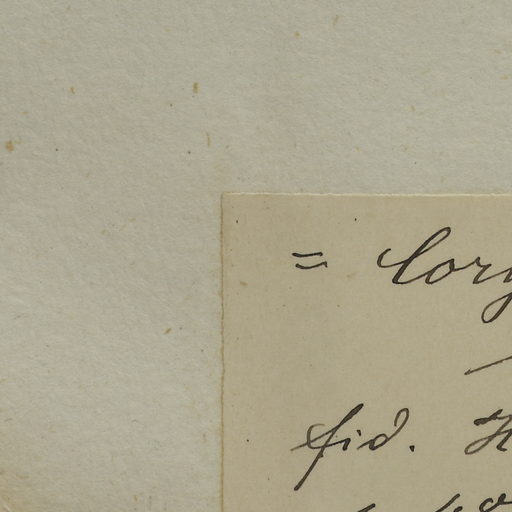 = Cory
fid. H